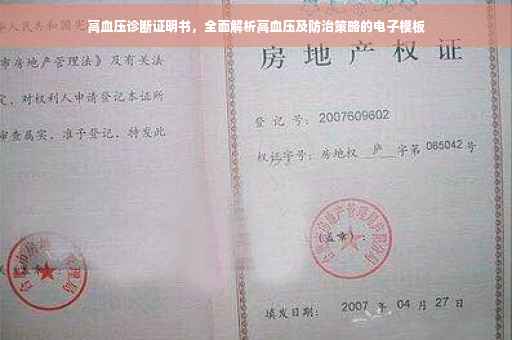 高血压诊断证明书，全面解析高血压及防治策略的电子模板
华人民共和国宪
市房地产管理法》及有关法
定，对权利人申请登记本证所
审查属实，准予登记，特发此
房地产权证
登 记 号：2007609602
权证字号：房地权 庐 字第 065042 号
(盖章)：
填发日期： 2007 年 04 月 27 日